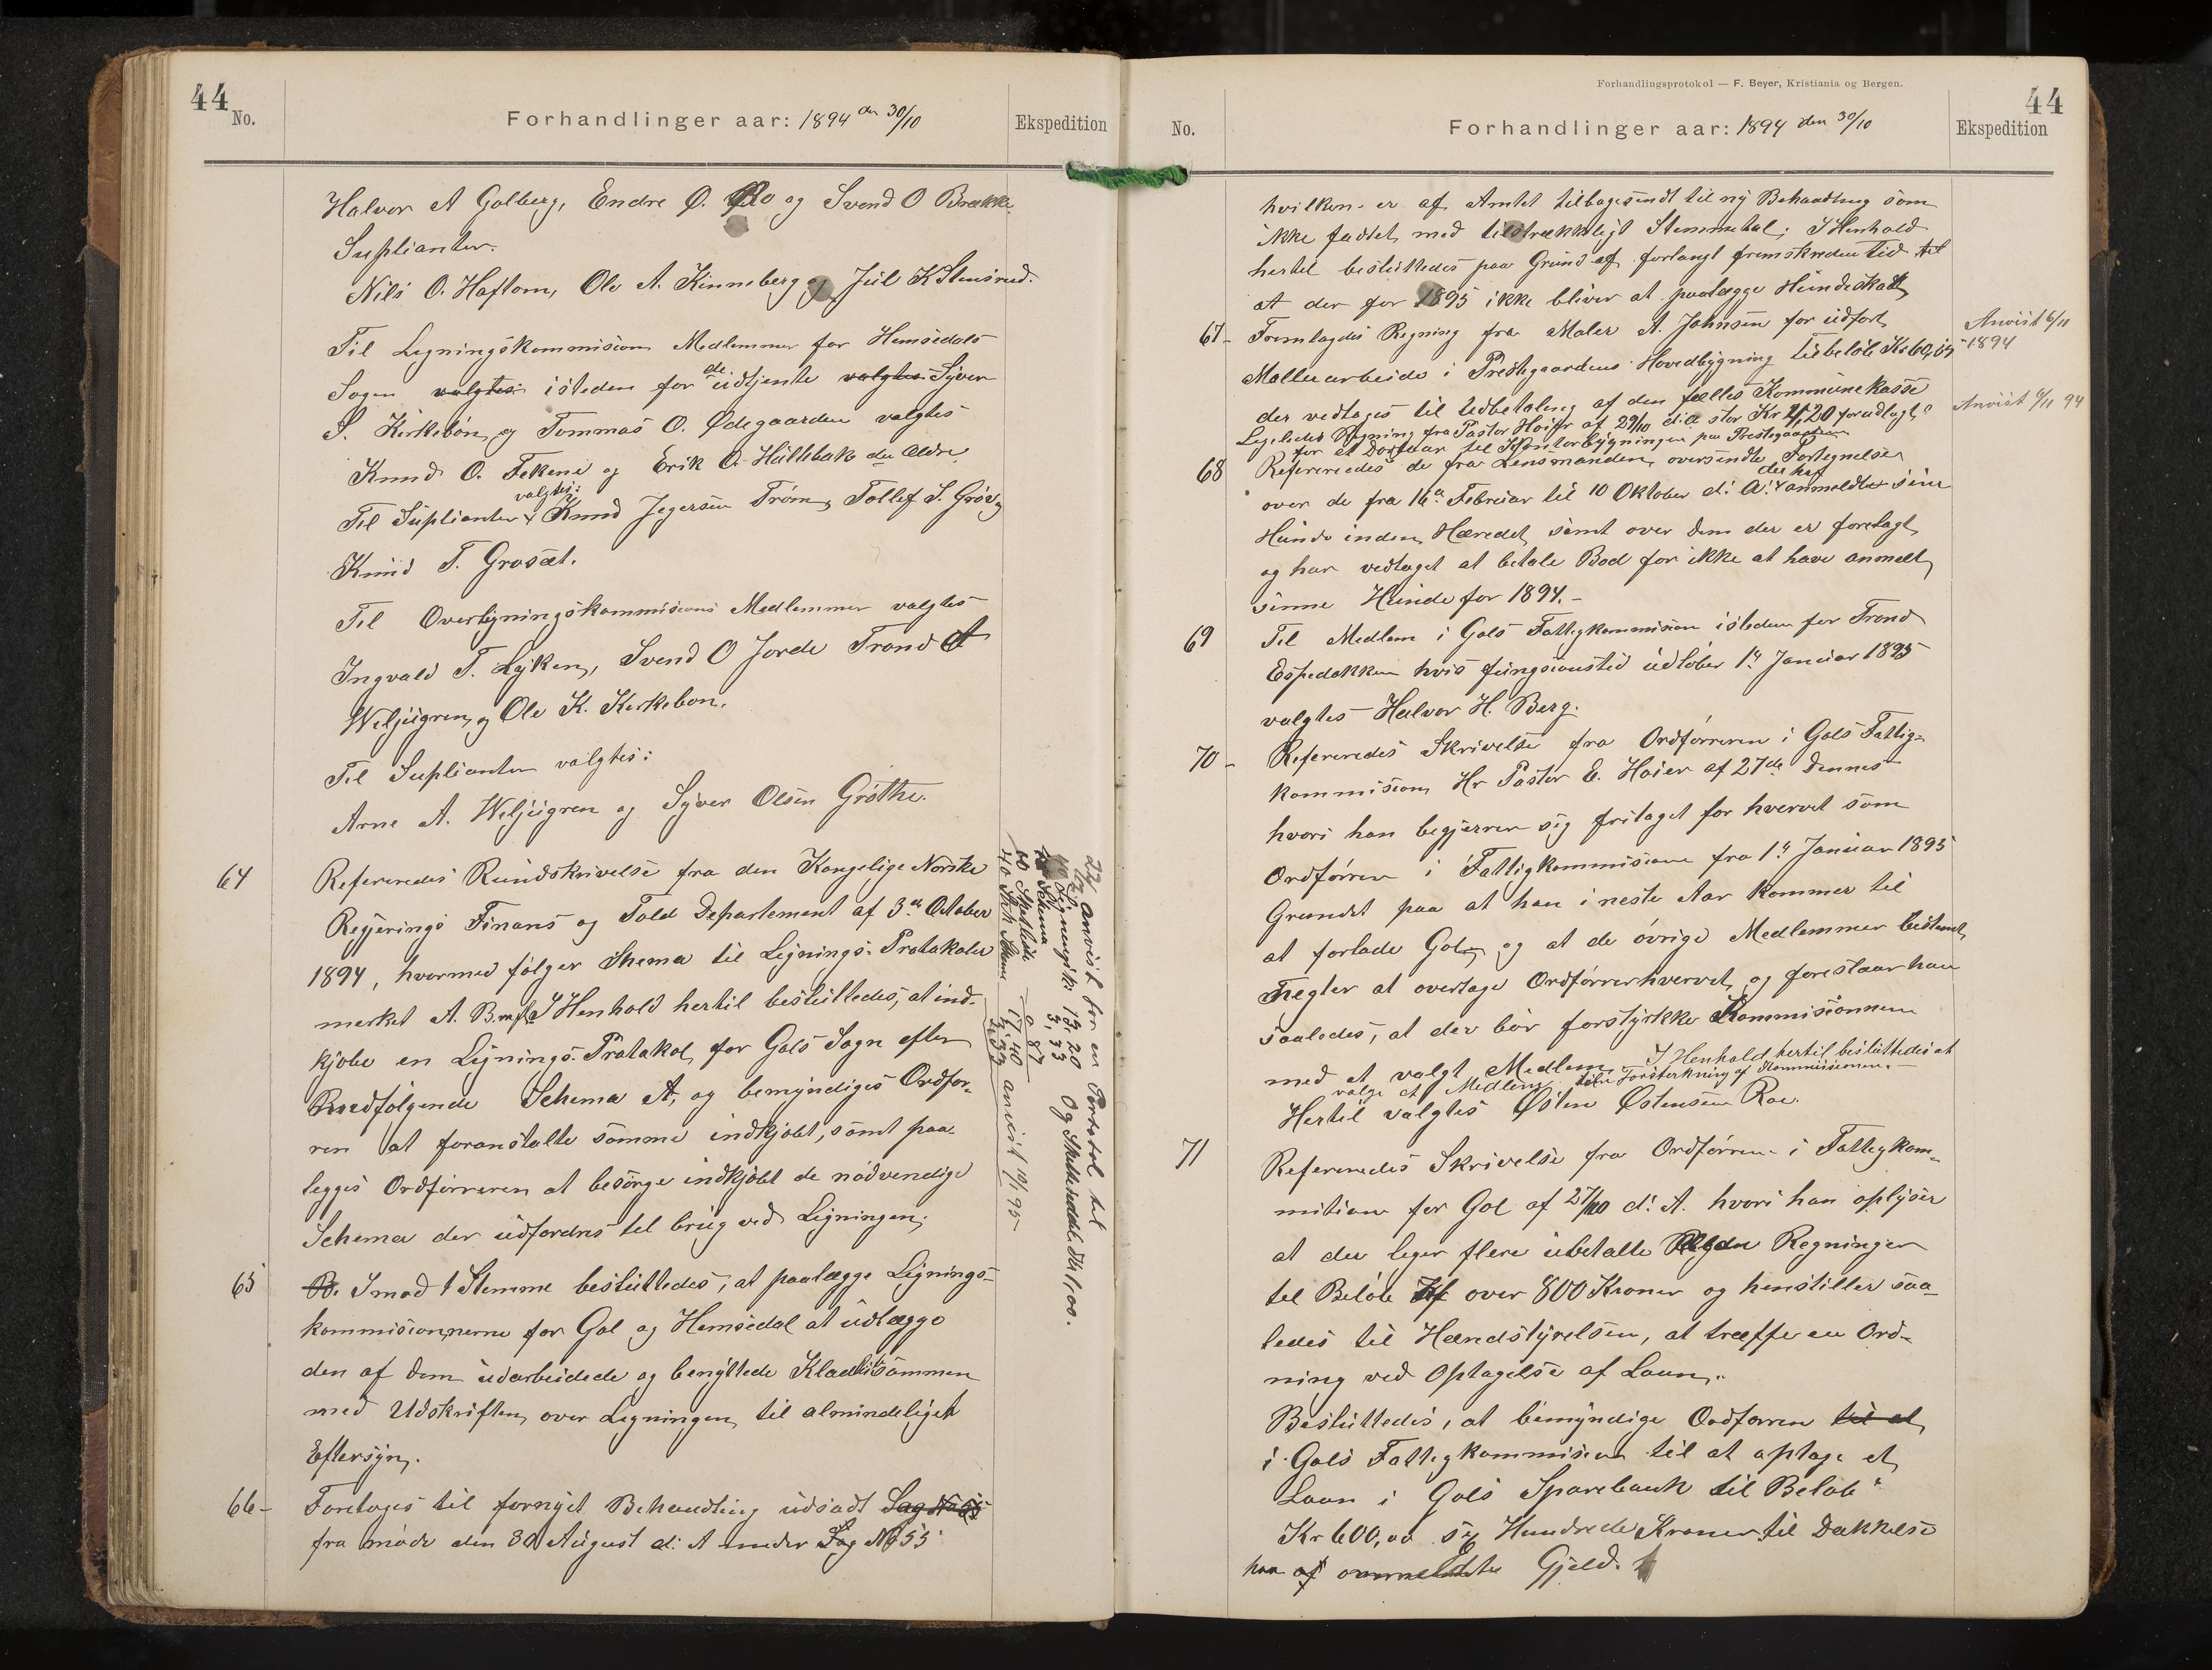 44
No.
Forhandlinger aar: 1894 den 30/10
Ekspedition
Halvor A Golberg, Endre Ø. Øflo og Svend O Brække.
Suplianter.
Nils O. Haftorn, Ole A. Kinneberg og Jul K Stensrud.
Til Ligningskommision Medlemmer for Hemsedals
Sogn valgtes isteden for de udtjente valgtes Syver
S. Kirkebön, og Tommas O. Ødegaarden valgtes
Knud O. Fekene og Erik O. Hülbak den Ældre
Til Suplianter valgtes: Knud Jegersen Tröm, Tollef S. Gröv og
Knud T. Grosæt.
Til Overligningskommisions Medlemmer valgtes
Ingvald T. Lyken, Svend O Jorde Trond A
Weljugren, og Ole K. Kirkebøn.
Til Suplianter valgtes:
Arne A. Weljugren og Syver Olsen Gröthe.
64
Refereredes Rundskrivelse fra den Kongelige Norske
Regjerings Finans og Told Departement af 3de October
1894, hvormed følger Shema til Lignings-Protokoler
merket A. B. I Henhold hertil besluttedes, at ind-
kjøbe en Lignings-Protakol, for Gols Sogn efter
medfølgende Schema A, og bemyndiges Ordfør-
ren at foranstalte samme indkjøbt, samt paa-
legges Ordførreren at besørge indkjøbt de nødvendige
Schema der udfordres til brug ved Ligningen,
22/1 Anvist for en Protokol til
Ligningsk: 13,20 Og Skatteseddel. Kr 1,00.
Schema 3,33
60 0,87
40 17,40 anvist 10/1 95
65
Imod 1 Stemme besluttedes, at paalægge Lignings-
kommisionnerne for Gol og Hemsedal at udlægge
den af dem udarbeidede og benyttede Kladliste sammen
med Udskriften, over Ligningen, til almindeligt
Eftersyn.
66-
Foretages til fornyet Behandling udsadt Sag No 55
fra møde den 30 August d: A under Sag No 55
Forhandlingsprotokol — F. Beyer, Kristiania og Bergen.
44
No.
Forhandlinger aar: 1894 den 30/10
Ekspedition
hvilken er af Amtet tilbagesendt til ny Behandling som
ikke fadtet med tilstrækkeligt Stemmetal; I Henhold
hertil besluttedes paa Grund af forlangt fremskreden Tid
at der for 1895 ikke bliver at paalægge Hundeskatt
67-
Fremlagdes Regning fra Maler A. Johnsen for udført
Mallerarbeide i Prestegaardens Hovedbygning til beløb Kr 60,65
Anvist 6/11
1894
der vedtages til Udbetaling af den fælles Kommunekasse
Ligeledes Regning fra Pastor Hoier af 29/10 d.a stor Kr 21,20 forudlagt
Anvist 6/11 94
for et Dosfaar til Kontorbygningen paa Prestegaarden
68
Refereredes de fra Lensmanden, oversendte Fortegnelser
over de fra 16de Februar til 10 Oktober d: A: der har anmeldte sine
Hunde inden Hæredet, samt over dem der er foretagt,
og har vedtaget at betale Bod for ikke at have anmeldt,
sinne Hunde for 1894.-
69
Til Medlem i Gols Fattigkommision isteden for Trond
Espedokken hvis fungsionstid udløber 1ste Januar 1895
valgtes Halvor H. Berg.
70-
Refereredes Skrivelse fra Ordførreren i Gols Fattig-
kommision, Hr Pastor E. Hoier af 27de dennes
hvori han begjærrer sig fritaget for hvervet som
Ordførren i Fattigkommisionen fra 1ste Januar 1895
Grundet paa at han i neste Aar kommer til
at forlade Gol, og at de øvrige Medlemmer bestemt,
negter at overtage Ordførrerhvervet, og foreslaar han
saaledes, at der bør forstyrkke Kommisionnen
med et valgt Medlem. I Henhold hertil besluttedes at
valge et Medlem til Forsterkning af Kommisionen.
Hertil valgtes Østen Østensen Roe.
71
Refereredes Skrivelse fra Ordførren i Fattigkom-
mition for Gol af 27/10 d: A. hvori han oplyser
at der leger flere ubetalte Regninger
til Beløb over 800 Kroner og henstiller saa-
ledes til Hændstyrelsen, at træffe en Ord-
ning ved Optagelse af Laan.
Besluttedes, at bemyndige Ordførren til at
i Gols Fattigkommision til at optage et
Laan i Gols Sparebank til Beløb
Kr 600,00 Sex Hundrede Kroner til Dækkelse
af ovenmeldte Gjeld.